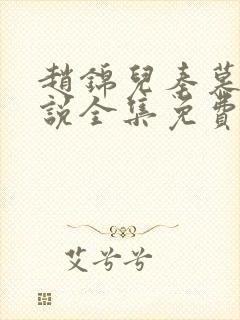 趙錦兒秦慕
說全集免費
艾兮兮